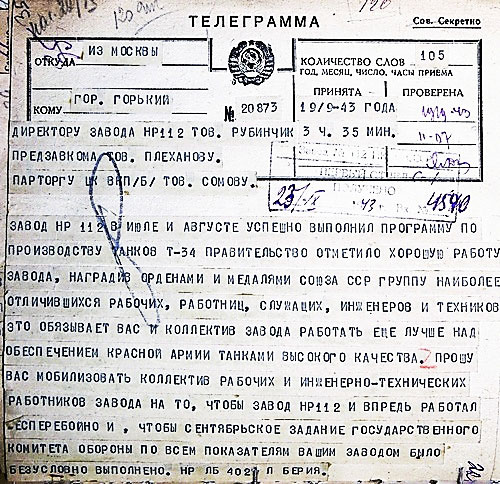 120
120 экз
ТЕЛЕГРАММА
Сов. Секретно
ОТКУДА ИЗ МОСКВЫ
КОЛИЧЕСТВО СЛОВ 105
ГОД, МЕСЯЦ, ЧИСЛО, ЧАСЫ ПРИЕМА
КОМУ ГОР. ГОРЬКИЙ
ПРИНЯТА ПРОВЕРЕНА
№ 20873
19/9-43 ГОДА 19/9-43
ДИРЕКТОРУ ЗАВОДА НР112 ТОВ. РУБИНЧИК 3 Ч. 35 МИН. 11-07
ПРЕДЗАВКОМА ТОВ. ПЛЕХАНОВУ.
ПАРТОРГУ ЦК ВКП/Б/ ТОВ. СОМОВУ.
ПОЛУЧЕНО
23/IX 43 г. Вх № 4590
ЗАВОД НР 112 В ИЮЛЕ И АВГУСТЕ УСПЕШНО ВЫПОЛНИЛ ПРОГРАММУ ПО
ПРОИЗВОДСТВУ ТАНКОВ Т-34 ПРАВИТЕЛЬСТВО ОТМЕТИЛО ХОРОШУЮ РАБОТУ
ЗАВОДА, НАГРАДИВ ОРДЕНАМИ И МЕДАЛЯМИ СОЮЗА ССР ГРУППУ НАИБОЛЕЕ
ОТЛИЧИВШИХСЯ РАБОЧИХ, РАБОТНИЦ, СЛУЖАЩИХ, ИНЖЕНЕРОВ И ТЕХНИКОВ
ЭТО ОБЯЗЫВАЕТ ВАС И КОЛЛЕКТИВ ЗАВОДА РАБОТАТЬ ЕЩЕ ЛУЧШЕ НАД
ОБЕСПЕЧЕНИЕМ КРАСНОЙ АРМИИ ТАНКАМИ ВЫСОКОГО КАЧЕСТВА. ПРОШУ
ВАС МОБИЛИЗОВАТЬ КОЛЛЕКТИВ РАБОЧИХ И ИНЖЕНЕРНО-ТЕХНИЧЕСКИХ
РАБОТНИКОВ ЗАВОДА НА ТО, ЧТОБЫ ЗАВОД НР112 И ВПРЕДЬ РАБОТАЛ
БЕСПЕРЕБОЙНО И , ЧТОБЫ СЕНТЯБРЬСКОЕ ЗАДАНИЕ ГОСУДАРСТВЕННОГО
КОМИТЕТА ОБОРОНЫ ПО ВСЕМ ПОКАЗАТЕЛЯМ ВАШИМ ЗАВОДОМ БЫЛО
БЕЗУСЛОВНО ВЫПОЛНЕНО. НР ЛБ 4027 Л БЕРИЯ.